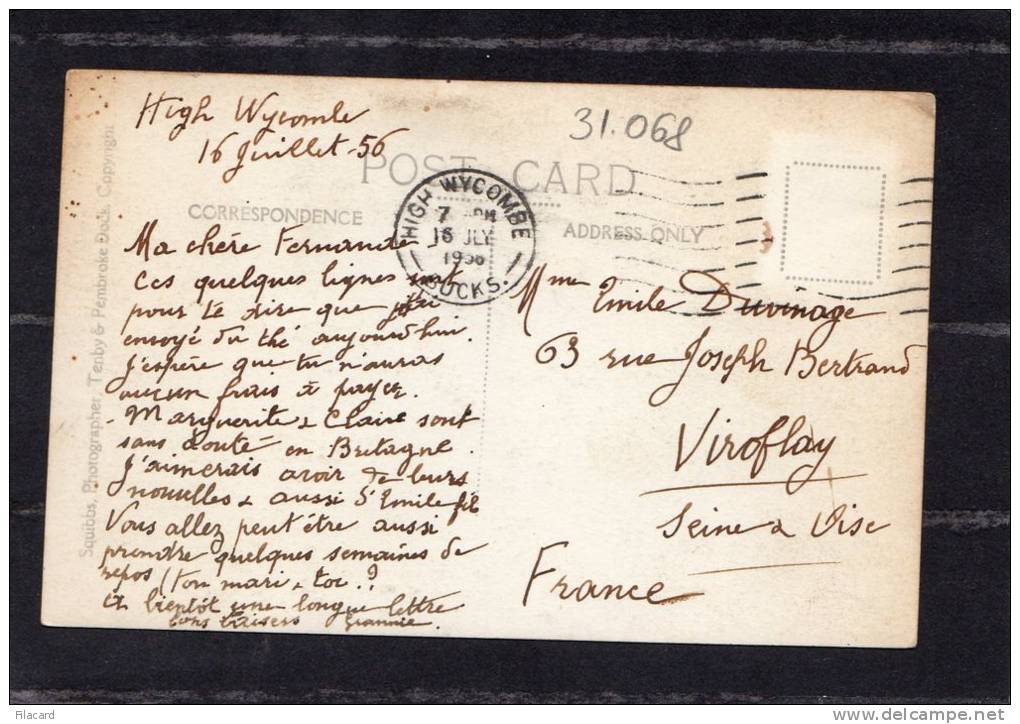 High Wycombe
16 Juillet-56
31.068
POST CARD
CORRESPONDENCE
ADDRESS ONLY
HIGH WYCOMBE
7 PM
16 JLY
1956
BUCKS.
Ma chère Fernande
Ces quelques lignes
pour te dire que j'ai
envoyé du thé aujourd'hui.
J'espère que tu n'auras
aucun frais à payer.
- Marguerite & Claire sont
sans doute en Bretagne.
J'aimerais avoir de leurs
nouvelles & aussi d'Emile fils
Vous allez peut être aussi
prendre quelques semaines de
repos (ton mari & toi.?
à bientôt une longue lettre
bons baisers Grannie.
Mme Emile Duvinage
63 rue Joseph Bertrand
Viroflay
Seine & Oise
France
Squibbs, Photographer, Tenby & Pembroke Dock. Copyright
Filacard
delcampe.net